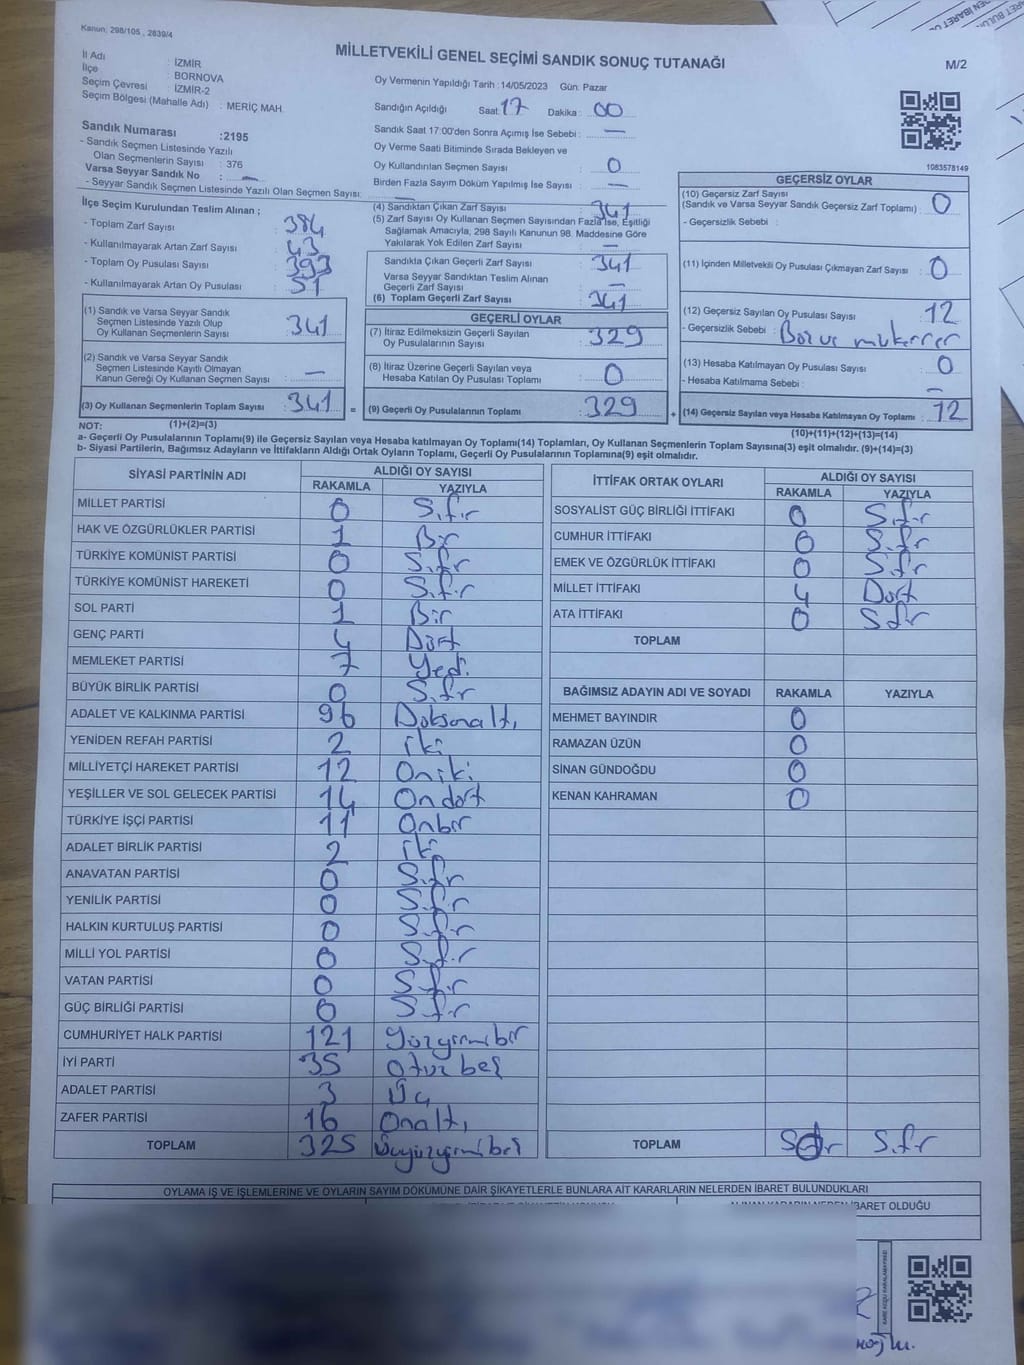 Kanun: 298/105 , 2839/4
MİLLETVEKİLİ GENEL SEÇİMİ SANDIK SONUÇ TUTANAĞI
M/2
İl Adı : İZMİR
İlçe : BORNOVA
Seçim Çevresi : İZMİR-2
Seçim Bölgesi (Mahalle Adı) : MERİÇ MAH.
Sandık Numarası :2195
- Sandık Seçmen Listesinde Yazılı
Olan Seçmenlerin Sayısı : 376
Varsa Seyyar Sandık No : —
- Seyyar Sandık Seçmen Listesinde Yazılı Olan Seçmen Sayısı: —
Oy Vermenin Yapıldığı Tarih : 14/05/2023 Gün: Pazar
Sandığın Açıldığı Saat: 17 Dakika : 00
Sandık Saat 17:00'den Sonra Açımış İse Sebebi : —
Oy Verme Saati Bitiminde Sırada Bekleyen ve
Oy Kullandırılan Seçmen Sayısı : 0
Birden Fazla Sayım Döküm Yapılmış İse Sayısı : —
1083578149
İlçe Seçim Kurulundan Teslim Alınan ;
- Toplam Zarf Sayısı : 384
- Kullanılmayarak Artan Zarf Sayısı : 43
- Toplam Oy Pusulası Sayısı : 393
- Kullanılmayarak Artan Oy Pusulası : 51
(1) Sandık ve Varsa Seyyar Sandık
Seçmen Listesinde Yazılı Olup
Oy Kullanan Seçmenlerin Sayısı : 341
(2) Sandık ve Varsa Seyyar Sandık
Seçmen Listesinde Kayıtlı Olmayan
Kanun Gereği Oy Kullanan Seçmen Sayısı : —
(3) Oy Kullanan Seçmenlerin Toplam Sayısı : 341 =
(1)+(2)=(3)
(4) Sandıktan Çıkan Zarf Sayısı : 341
(5) Zarf Sayısı Oy Kullanan Seçmen Sayısından Fazla İse, Eşitliği
Sağlamak Amacıyla, 298 Sayılı Kanunun 98. Maddesine Göre
Yakılarak Yok Edilen Zarf Sayısı : —
Sandıkla Çıkan Geçerli Zarf Sayısı : 341
Varsa Seyyar Sandıktan Teslim Alınan
Geçerli Zarf Sayısı : —
(6) Toplam Geçerli Zarf Sayısı : 341
GEÇERLİ OYLAR
(7) İtiraz Edilmeksizin Geçerli Sayılan
Oy Pusulalarının Sayısı : 329
(8) İtiraz Üzerine Geçerli Sayılan veya
Hesaba Katılan Oy Pusulası Toplamı : 0
(9) Geçerli Oy Pusulalarının Toplamı : 329 +
GEÇERSİZ OYLAR
(10) Geçersiz Zarf Sayısı
(Sandık ve Varsa Seyyar Sandık Geçersiz Zarf Toplamı) : 0
- Geçersizlik Sebebi :
(11) İçinden Milletvekili Oy Pusulası Çıkmayan Zarf Sayısı : 0
(12) Geçersiz Sayılan Oy Pusulası Sayısı : 12
- Geçersizlik Sebebi : Boz ve mükerrer
(13) Hesaba Katılmayan Oy Pusulası Sayısı : 0
- Hesaba Katılmama Sebebi : —
(14) Geçersiz Sayılan veya Hesaba Katılmayan Oy Toplamı : 12
(10)+(11)+(12)+(13)=(14)
NOT:
a- Geçerli Oy Pusulalarının Toplamı(9) ile Geçersiz Sayılan veya Hesaba katılmayan Oy Toplamı(14) Toplamları, Oy Kullanan Seçmenlerin Toplam Sayısına(3) eşit olmalıdır. (9)+(14)=(3)
b- Siyasi Partilerin, Bağımsız Adayların ve İttifakların Aldığı Ortak Oyların Toplamı, Geçerli Oy Pusulalarının Toplamına(9) eşit olmalıdır.
SİYASİ PARTİNİN ADI ALDIĞI OY SAYISI
RAKAMLA YAZIYLA
MİLLET PARTİSİ 0 Sıfır
HAK VE ÖZGÜRLÜKLER PARTİSİ 1 Bir
TÜRKİYE KOMÜNİST PARTİSİ 0 Sıfır
TÜRKİYE KOMÜNİST HAREKETİ 0 Sıfır
SOL PARTİ 1 Bir
GENÇ PARTİ 4 Dört
MEMLEKET PARTİSİ 7 Yedi
BÜYÜK BİRLİK PARTİSİ 0 Sıfır
ADALET VE KALKINMA PARTİSİ 96 Doksanaltı
YENİDEN REFAH PARTİSİ 2 iki
MİLLİYETÇİ HAREKET PARTİSİ 12 Oniki
YEŞİLLER VE SOL GELECEK PARTİSİ 14 Ondört
TÜRKİYE İŞÇİ PARTİSİ 11 Onbir
ADALET BİRLİK PARTİSİ 2 iki
ANAVATAN PARTİSİ 0 Sıfır
YENİLİK PARTİSİ 0 Sıfır
HALKIN KURTULUŞ PARTİSİ 0 Sıfır
MİLLİ YOL PARTİSİ 0 Sıfır
VATAN PARTİSİ 0 Sıfır
GÜÇ BİRLİĞİ PARTİSİ 0 Sıfır
CUMHURİYET HALK PARTİSİ 121 Yüzyirmibir
İYİ PARTİ 35 Otuzbeş
ADALET PARTİSİ 3 Üç
ZAFER PARTİSİ 16 Onaltı
TOPLAM 325 Üçyüzyirmibeş
İTTİFAK ORTAK OYLARI ALDIĞI OY SAYISI
RAKAMLA YAZIYLA
SOSYALİST GÜÇ BİRLİĞİ İTTİFAKI 0 Sıfır
CUMHUR İTTİFAKI 0 Sıfır
EMEK VE ÖZGÜRLÜK İTTİFAKI 0 Sıfır
MİLLET İTTİFAKI 4 Dört
ATA İTTİFAKI 0 Sıfır
TOPLAM
BAĞIMSIZ ADAYIN ADI VE SOYADI RAKAMLA YAZIYLA
MEHMET BAYINDIR 0
RAMAZAN ÜZÜN 0
SİNAN GÜNDOĞDU 0
KENAN KAHRAMAN 0
TOPLAM Sıfır Sıfır
OYLAMA İŞ VE İŞLEMLERİNE VE OYLARIN SAYIM DÖKÜMÜNE DAİR ŞİKAYETLERLE BUNLARA AİT KARARLARIN NELERDEN İBARET BULUNDUKLARI
İBARET OLDUĞU